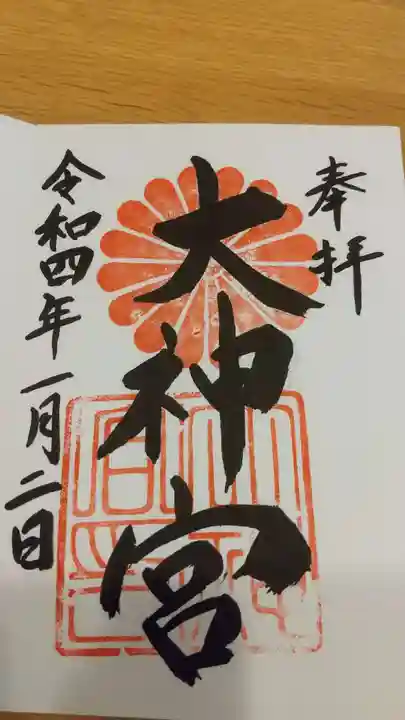 奉拝
大神宮
令和四年一月二日